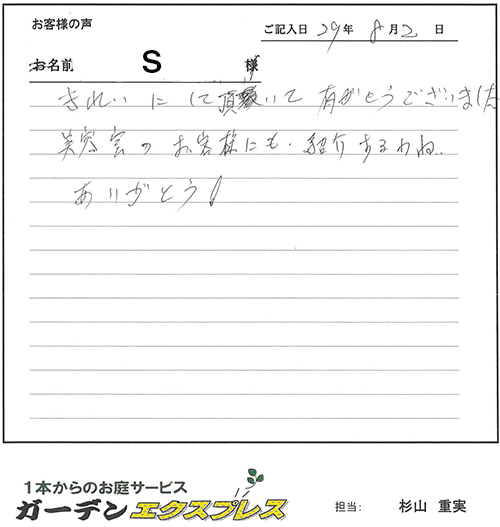 お客様の声
ご記入日 29年 8月2日
お名前 S 様
きれいにして頂いて有がとうございました
美容室のお客様にも紹介するわね
ありがとう!
1本からのお庭サービス
ガーデンエクスプレス 担当: 杉山 重実